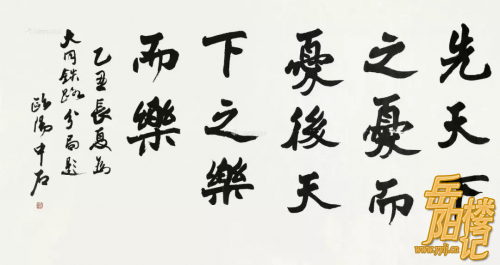 先天下
之憂而
憂後天
下之樂
而樂
乙丑長夏為
大同鉄路分局題
歐陽中石
岳阳楼记
www.yylj.cn